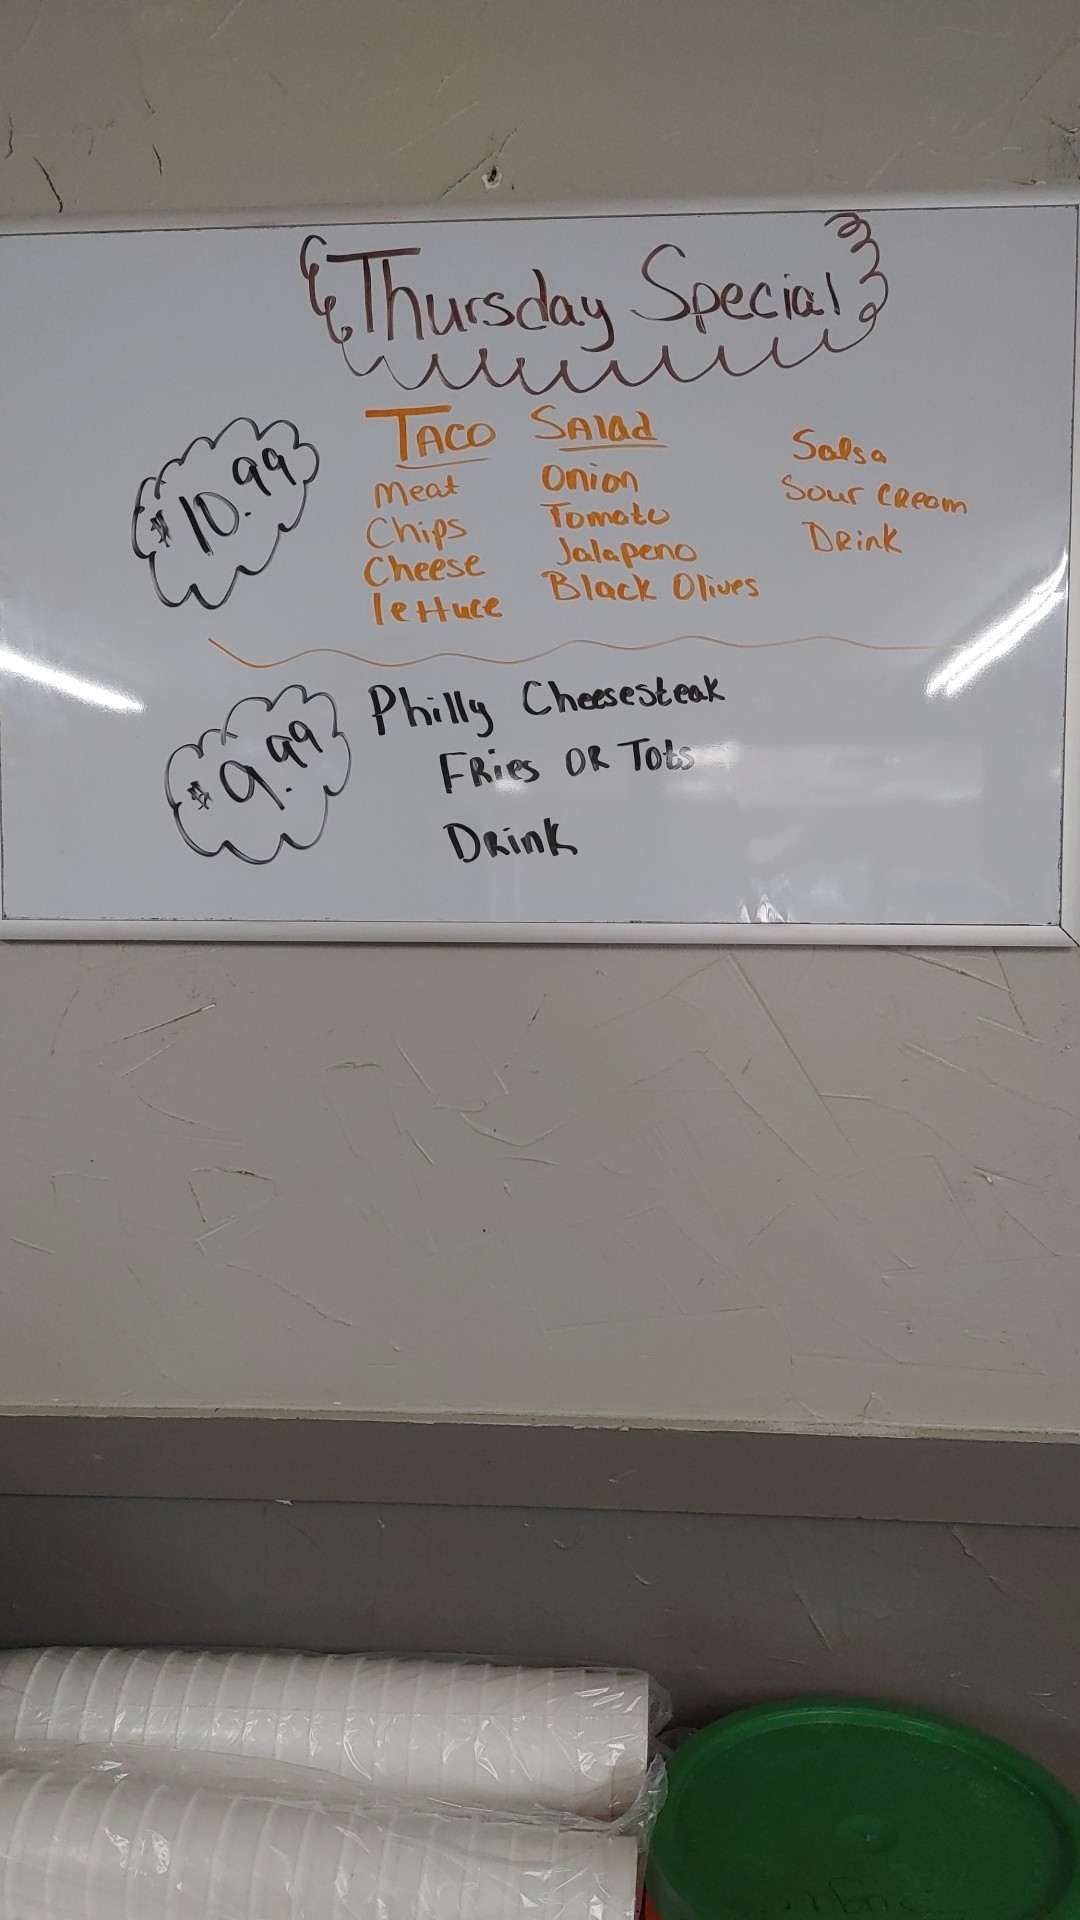 Thursday Special
$10.99
Taco Salad
Meat
Chips
Cheese
lettuce
Onion
Tomato
Jalapeno
Black Olives
Salsa
Sour Cream
Drink
$9.99
Philly Cheesesteak
Fries or Tots
Drink